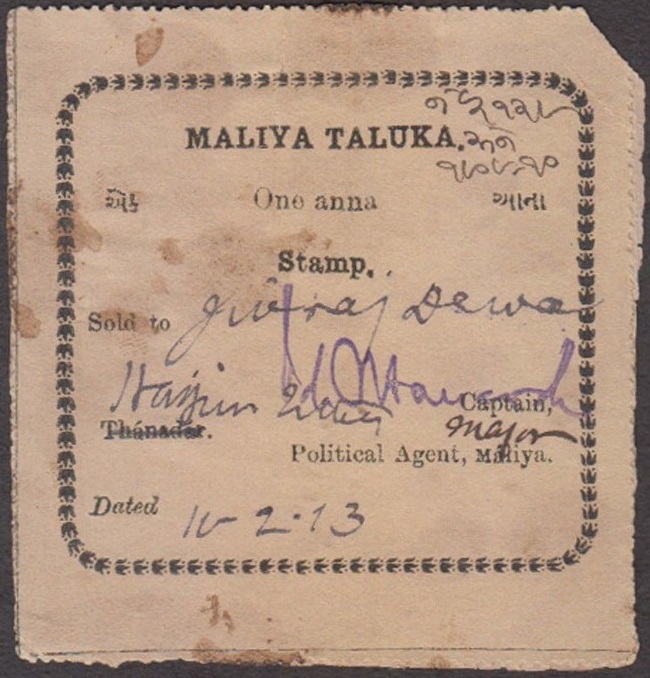 MALIYA TALUKA.
એક One anna આના
Stamp.
Sold to Jivraj Dewa
Captain,
Thánadar. Major
Political Agent, Maliya.
Dated 10-2-13